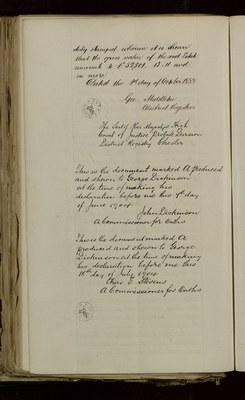 duly stamped whereon it is shown
that the gross value of the said Estate
amounts to £
no more
Dated the day of October
Geo. Middleton
District Registrar
The Seal of Her Majestys High
Court of Justice Probate Division
District Registry Chester
This is the document marked A produced
and shown to George Dickinson
at the time of making his
declaration before me this
of June 1904
John Dickinson
A Commissioner for Oaths
This is the document marked A
produced and shown to George
Dickinson at the time of making
his declaration before me this
day of July 1904
Stevens
A Commissioner for Oaths